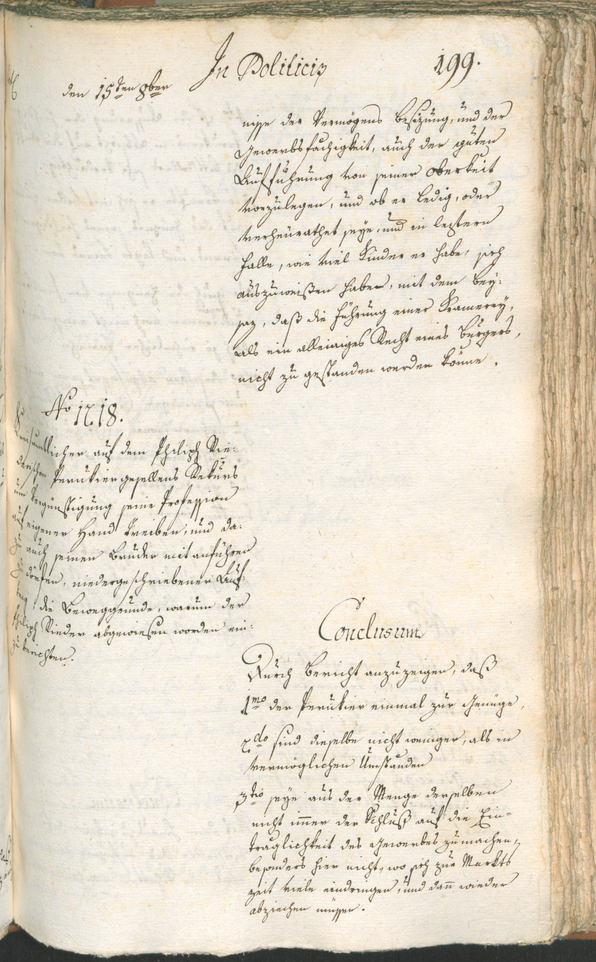 In Politicis
199.
den 15ten 8ber
niße der Vermögens Besizung, und der
Gewerbsfachigkeit, auch der guten
Aufführung von seiner Oberkeit
vorzulegen, und ob er ledig, oder
verheurathet seye, und in leztern
Falle, wie viel Kinder er habe, sich
auszuweißen haben, mit dem Bey-
saz, daß die Führung einer Kramerey,
als ein alleiniges Recht eines Bürgers,
nicht zu gestanden werden könne.
No 1718.
auf dem Philipp Rie-
Perükiergesellens Rekurs
um Begünstigung seine Profession
auf eigener Hand treiben, und da-
zu auch seinen Bruder mit anführen
zu dörfen, niedergeschriebener Auf-
trag, die Beweggründe, warum der
Philipp Rieder abgewiesen worden ein-
zuberichten.
Conclusum
Durch Bericht anzuzeigen, daß
1mo der Perükier einmal zur Genüge,
2do sind dieselbe nicht weniger, als in
vermöglichen Umständen
3tio seye aus der Menge derselben
nicht immer der Schluß auf die Ein-
träglichkeit des Gewerbes zu machen,
besonders hier nicht, wo sich zur Markts
zeit viele eindringen, und dann wieder
abziehen müssen.